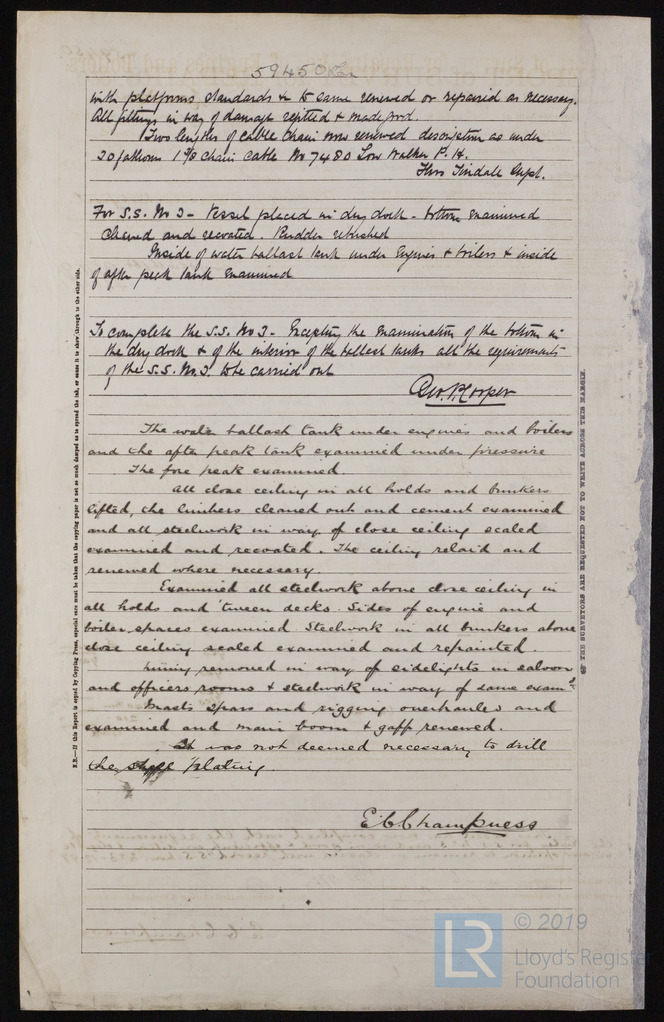 59450
with platforms standards & to same renewed or repaired as necessary.
All fittings in way of damage refitted & made good.
Two lengths of cable chain now renewed description as under
30 fathoms 1 3/8 chain cable No 7480 Low Walker P. H.
Thos Tindale Supt.
For S.S. No 3 - Vessel placed in dry dock - bottom examined
cleaned and recoated. Rudder rebushed
Inside of water ballast tank under Engines & boilers & inside
of after peak tank examined
To complete the S.S. No 3 - Excepting the examination of the bottom in
the dry dock & of the interior of the ballast tanks all the requirements
of the S.S. No. 3 to be carried out
Geo. P. Cooper
The water ballast tank under engines and boilers
and the after peak tank examined under pressure
The fore peak examined
All close ceiling in all holds and bunkers
lifted, the limbers cleaned out and cement examined
and all steelwork in way of close ceiling scaled
examined and recoated. The ceiling relaid and
renewed where necessary.
Examined all steelwork above close ceiling in
all holds and 'tween decks. Sides of engine and
boiler spaces examined Steelwork in all bunkers above
close ceiling scaled examined and repainted.
Lining removed in way of sidelights in saloon
and officers rooms & steelwork in way of same examd.
Masts spars and rigging overhauled and
examined and main boom & gaff renewed.
It was not deemed necessary to drill
the plating.
E C Champness
N.B.—If this Report is copied by Copying Press, especial care must be taken that the copying paper is not so much damped as to spread the ink, or cause it to show through to the other side.
THE SURVEYORS ARE REQUESTED NOT TO WRITE ACROSS THIS MARGIN
LR
© 2019
Lloyd's Register
Foundation